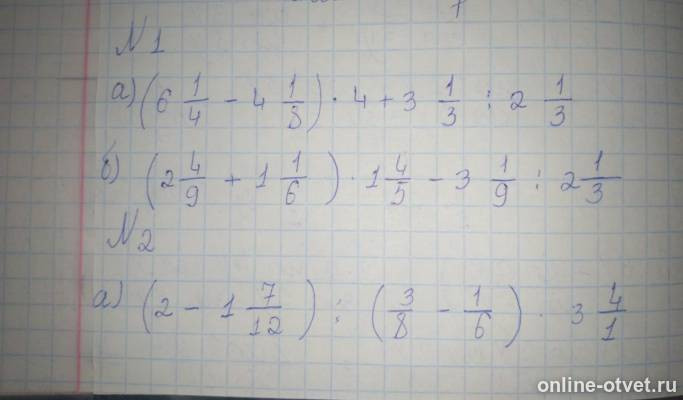 №1
а) (6 1/4 - 4 1/8) · 4 + 3 1/3 : 2 1/3
б) (2 4/9 + 1 1/6) · 1 4/5 - 3 1/9 : 2 1/3
№2
а) (2 - 1 7/12) : (3/8 - 1/6) · 3 4/1
online-otvet.ru